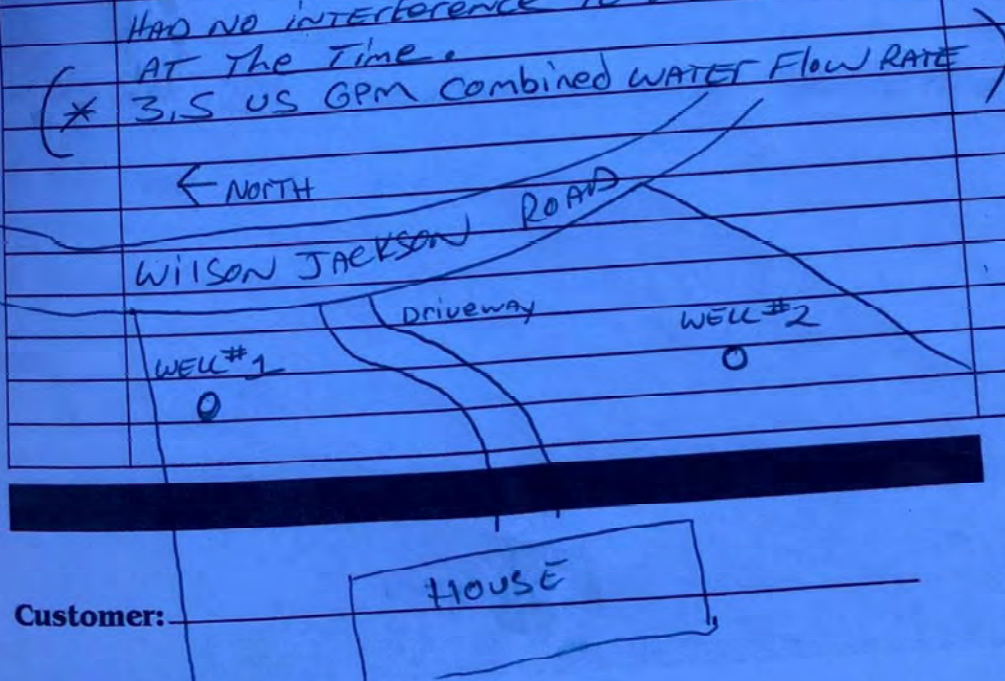 HAD NO INTERFERENCE
AT The Time.
* 3.5 US GPM Combined WATER Flow RATE
← NORTH
WilSON JACKSON ROAD
Driveway
WELL #2
WELL #1
HOUSE
Customer: